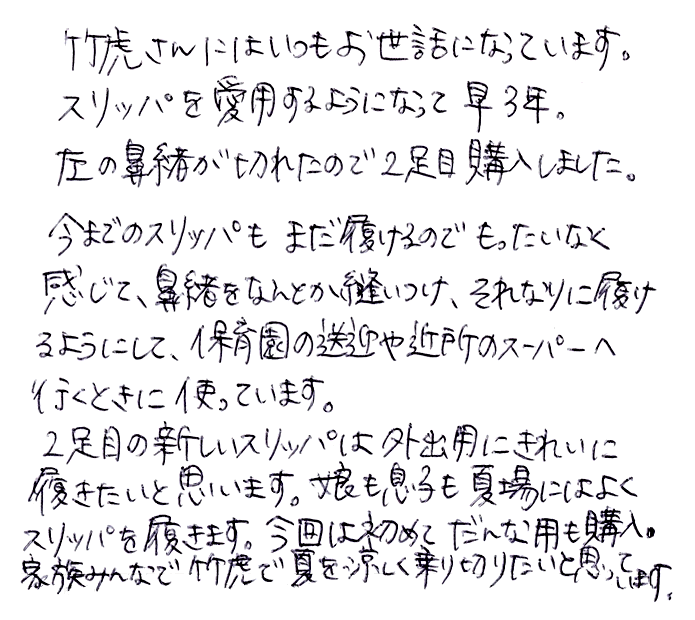 竹虎さんにはいつもお世話になっています。
スリッパを愛用するようになって早3年。
左の鼻緒が切れたので2足目購入しました。
今までのスリッパもまだ履けるのでもったいなく
感じて、鼻緒をなんとか縫いつけ、それなりに履け
るようにして、保育園の送迎や近所のスーパーへ
行くときに使っています。
2足目の新しいスリッパは外出用にきれいに
履きたいと思います。娘も息子も夏場にはよく
スリッパを履きます。今回は初めてだんな用も購入。
家族みんなで竹虎で夏を涼しく乗り切りたいと思っています。